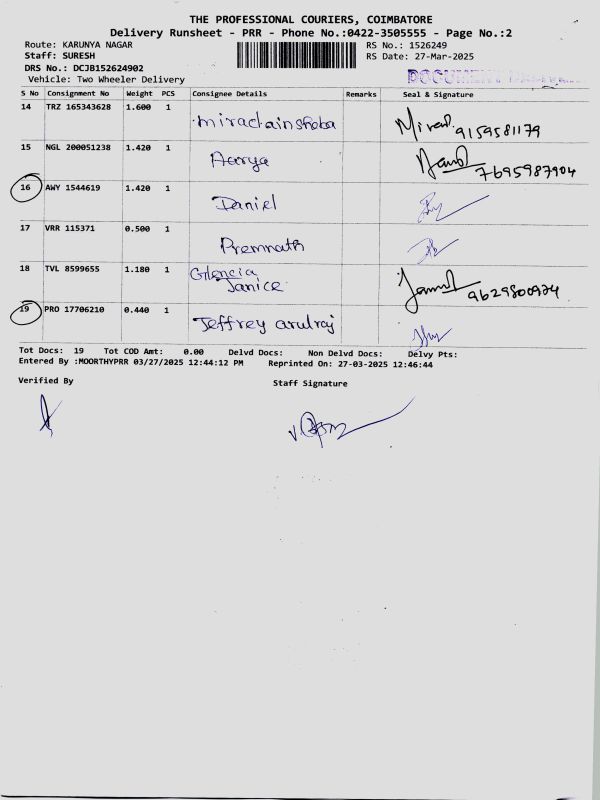 THE PROFESSIONAL COURIERS, COIMBATORE
Delivery Runsheet - PRR - Phone No.:0422-3505555 - Page No.:2
Route: KARUNYA NAGAR
RS No.: 1526249
Staff: SURESH
RS Date: 27-Mar-2025
DRS No.: DCJB152624902
DOCUMENT
Vehicle: Two Wheeler Delivery
S No Consignment No Weight PCS Consignee Details Remarks Seal & Signature
14 TRZ 165343628 1.600 1
Miraclainsheba
9159581179
15 NGL 200051238 1.420 1
Aarya
7695987904
16 AWY 1544619 1.420 1
Daniel
17 VRR 115371 0.500 1
Premnath
18 TVL 8599655 1.180 1
Glencia
Janice
9629800924
19 PRO 17706210 0.440 1
Jeffrey arulraj
Tot Docs: 19 Tot COD Amt: 0.00 Delvd Docs: Non Delvd Docs: Delvy Pts:
Entered By :MOORTHYPRR 03/27/2025 12:44:12 PM Reprinted On: 27-03-2025 12:46:44
Verified By
Staff Signature